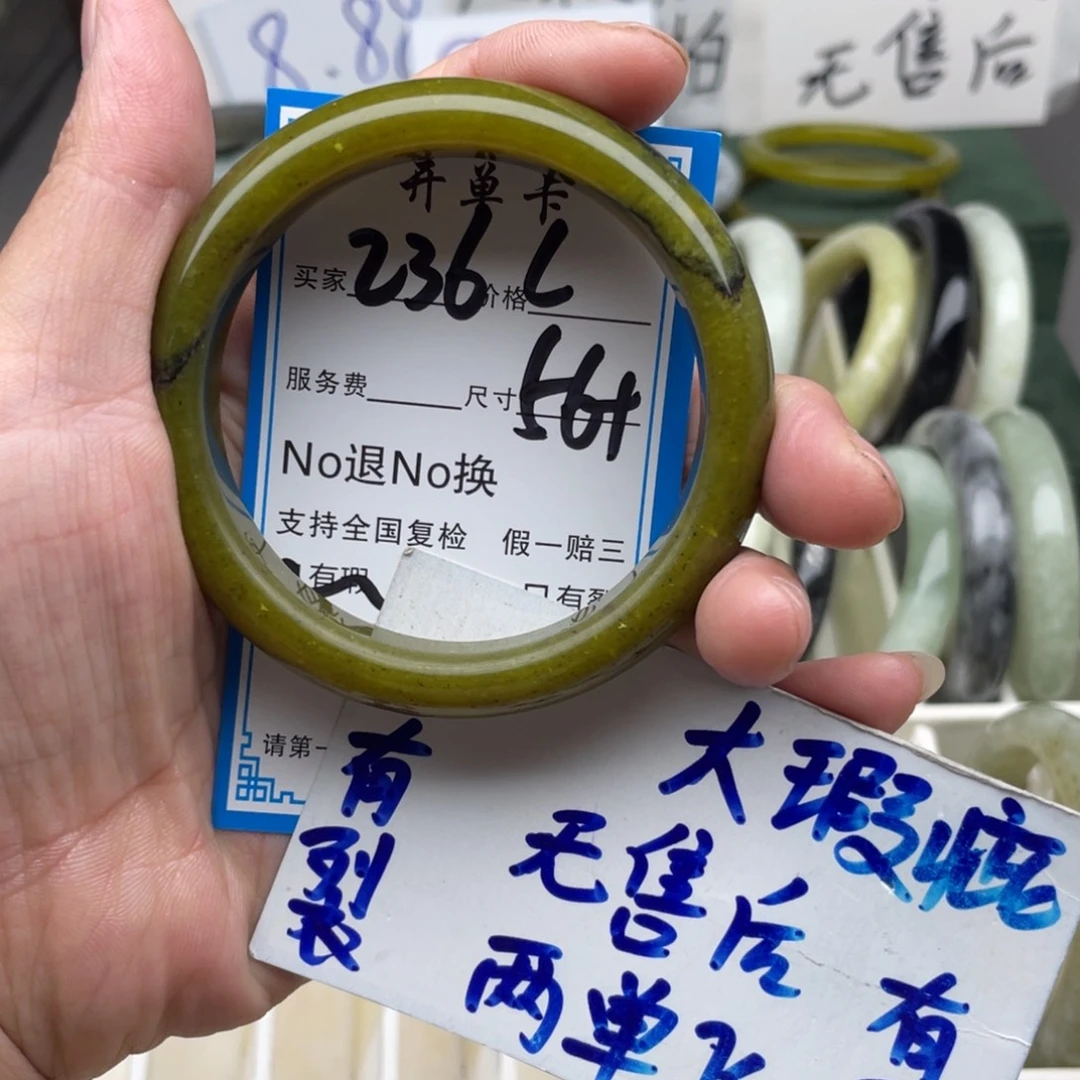 8.8
怕
无售后
弃单卡
买家 236 价格 L
服务费 尺寸 56+
No退No换
支持全国复检 假一赔三
有瑕 只有裂
请第一
有裂
大瑕疵
无售后
两单
有